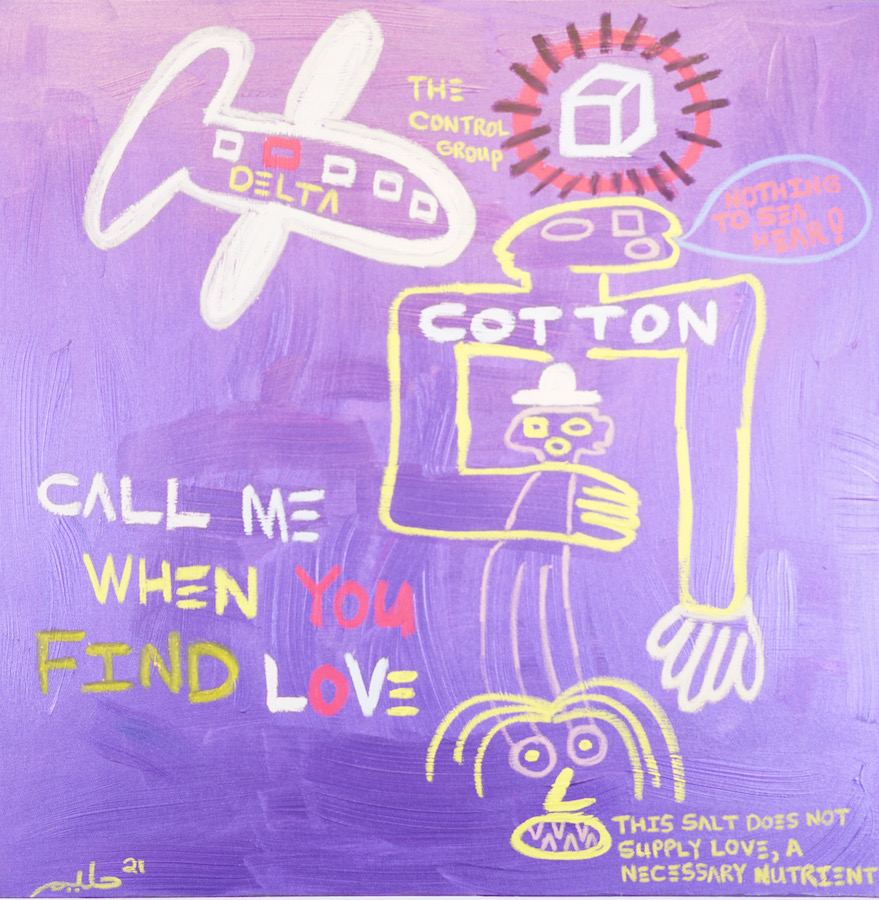 THE
CONTROL
GROUP
DELTA
NOTHING
TO SEA
HEAR!
COTTON
CALL ME
WHEN YOU
FIND LOVE
THIS SALT DOES NOT
SUPPLY LOVE, A
NECESSARY NUTRIENT
حليم 21